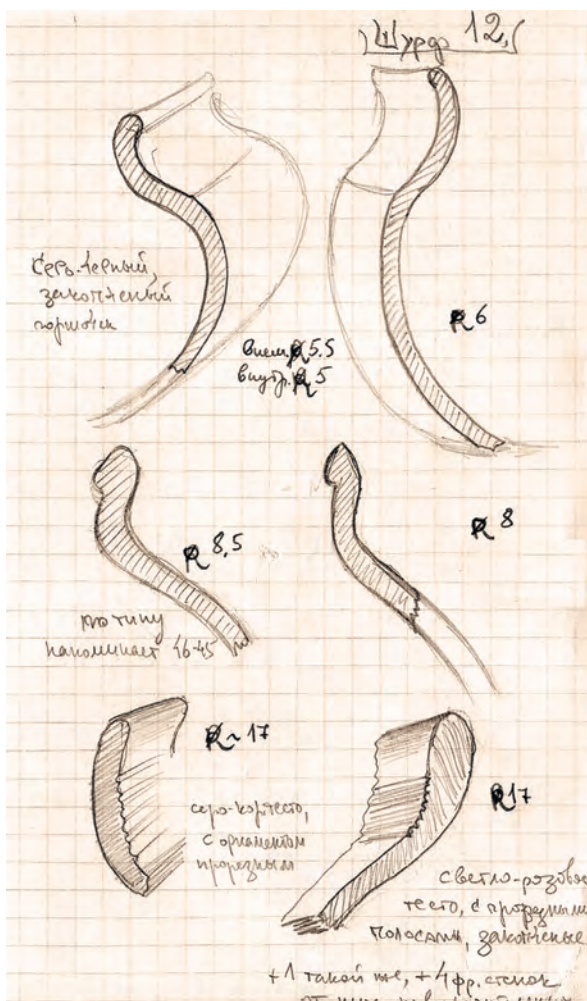 Шурф 12.
Серо-черный,
закопченый
горшочек
внеш. R 5.5
внутр. R 5
R 6
R 8,5
по типу
напоминает 46-45
R 8
R ~ 17
серо-кор тесто,
с орнаментом
прорезным
R 17
светло-розовое
тесто, с прорезными
полосами, закопченые
+ 1 такой же, + 4 фр. стенок
от